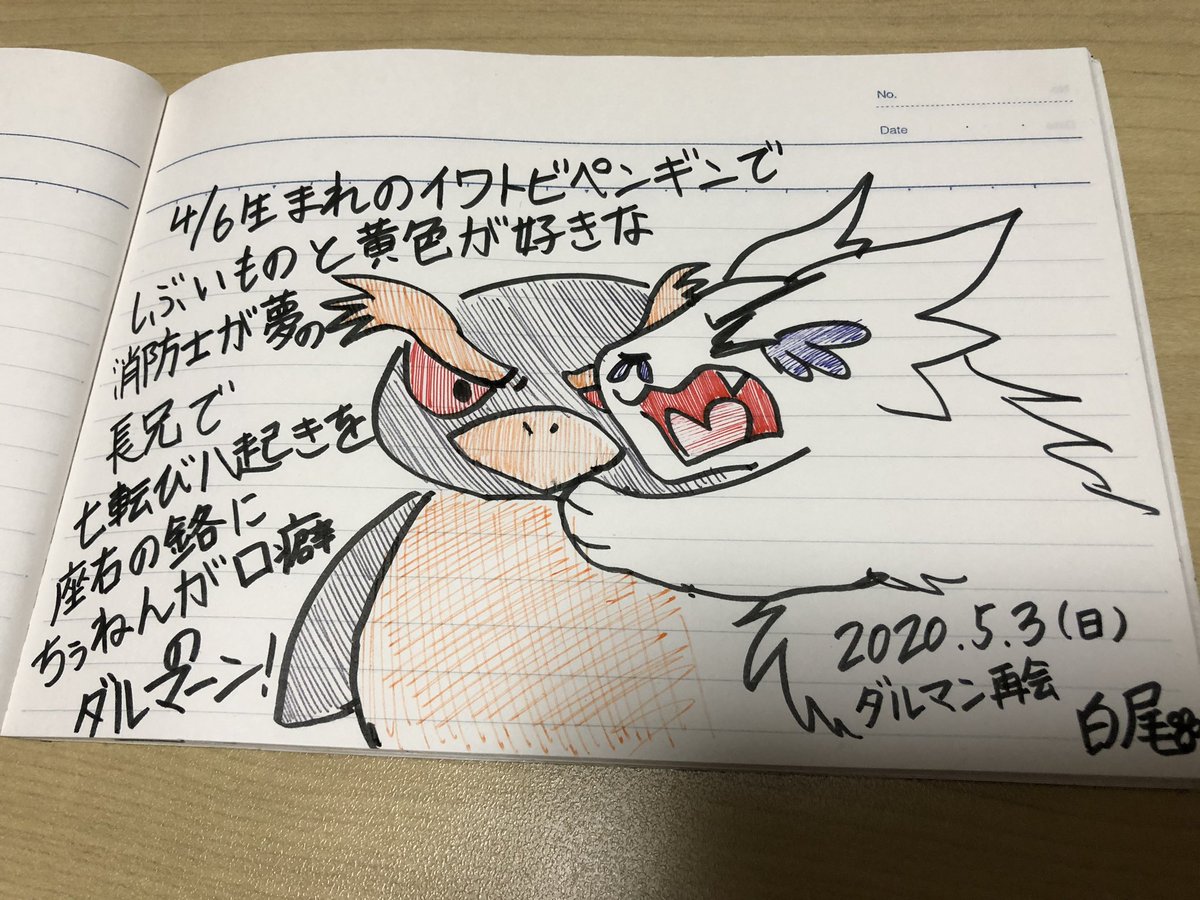 No.
Date
4/6生まれのイワトビペンギンで
しぶいものと黄色が好きな
消防士が夢の
長兄で
七転び八起きを
座右の銘に
ちぅねんが口癖
の
ダルマーン!
2020.5.3(日)
ダルマン再会
白尾